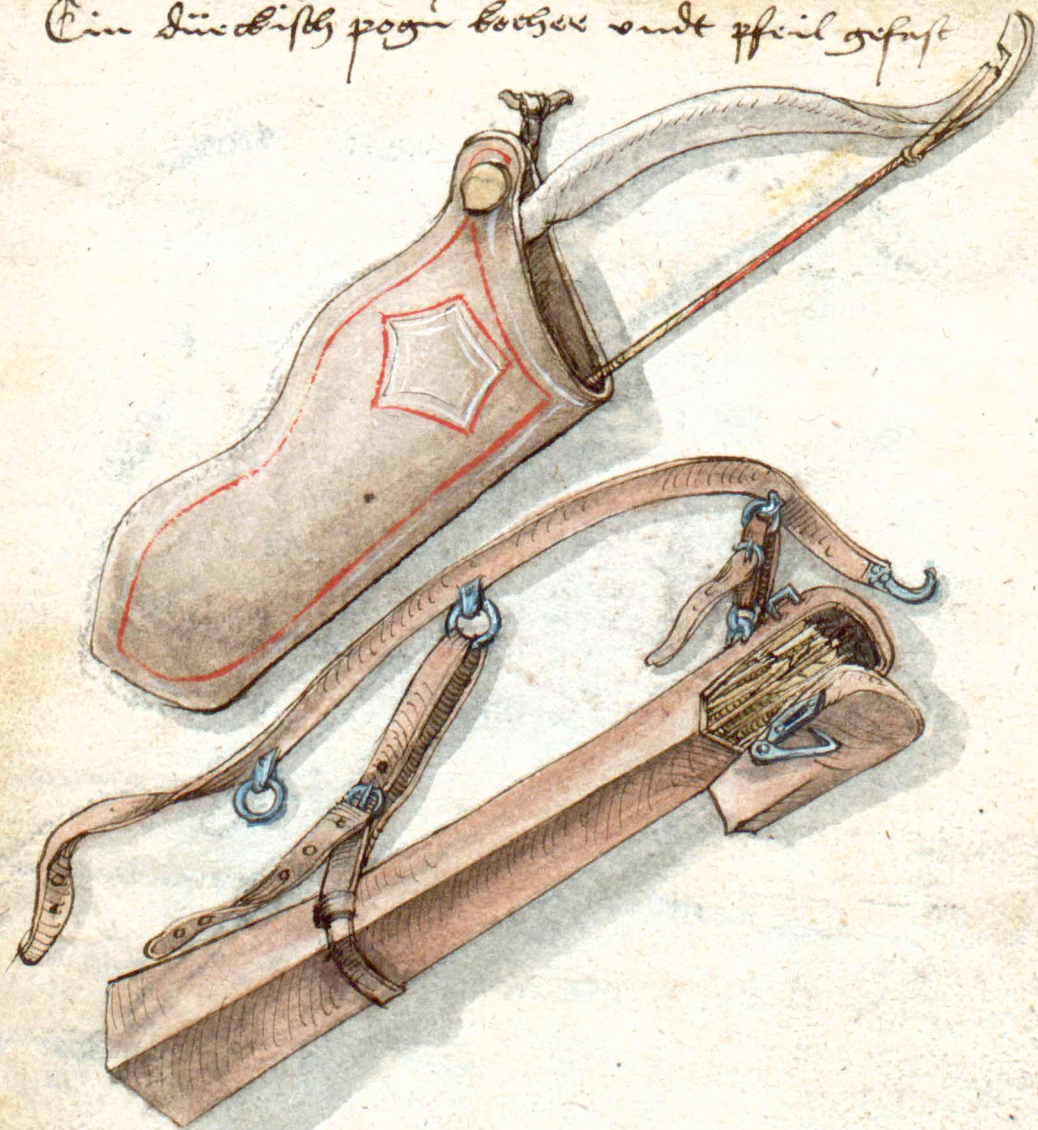 Ein dürckisch pogn kocher vndt pfeil gefast